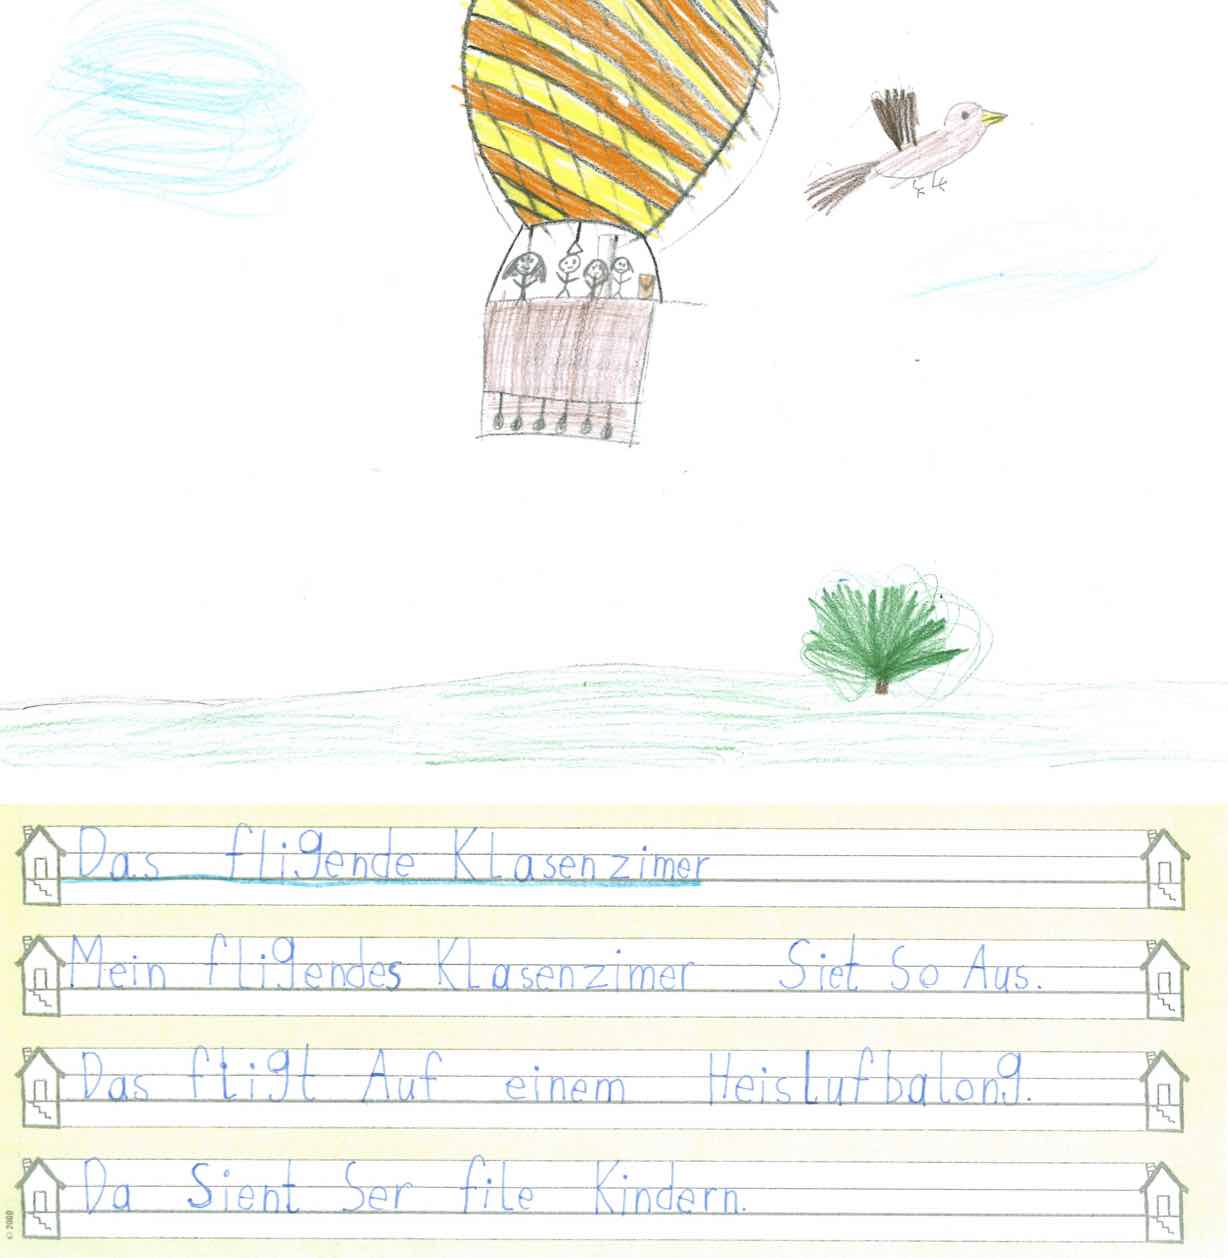 Das fligende Klasenzimer
Mein fligendes Klasenzimer Siet So Aus.
Das fligt Auf einem Heislufbalong.
Da Sient Ser file Kindern.
© 2009